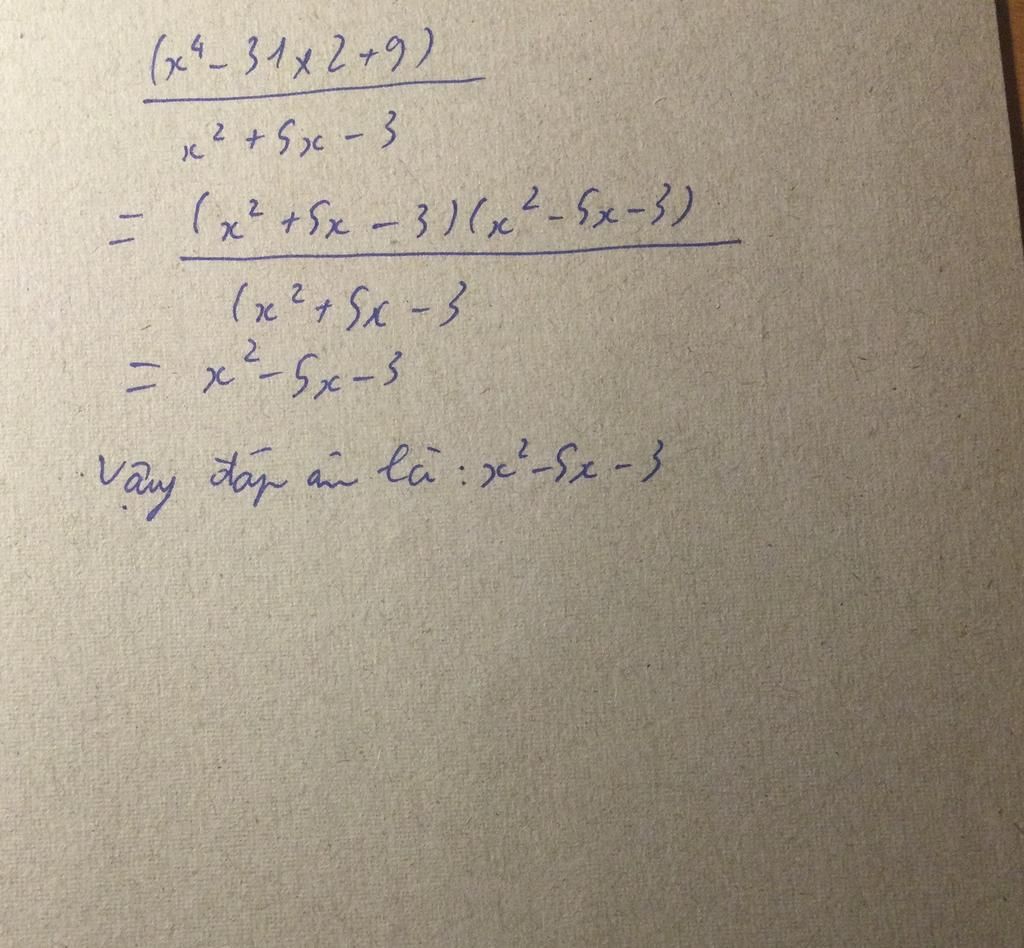 (x⁴ - 31x2 + 9)
x² + 5x - 3
= (x² + 5x - 3)(x² - 5x - 3)
(x² + 5x - 3
= x² - 5x - 3
Vậy đáp án là : x² - 5x - 3